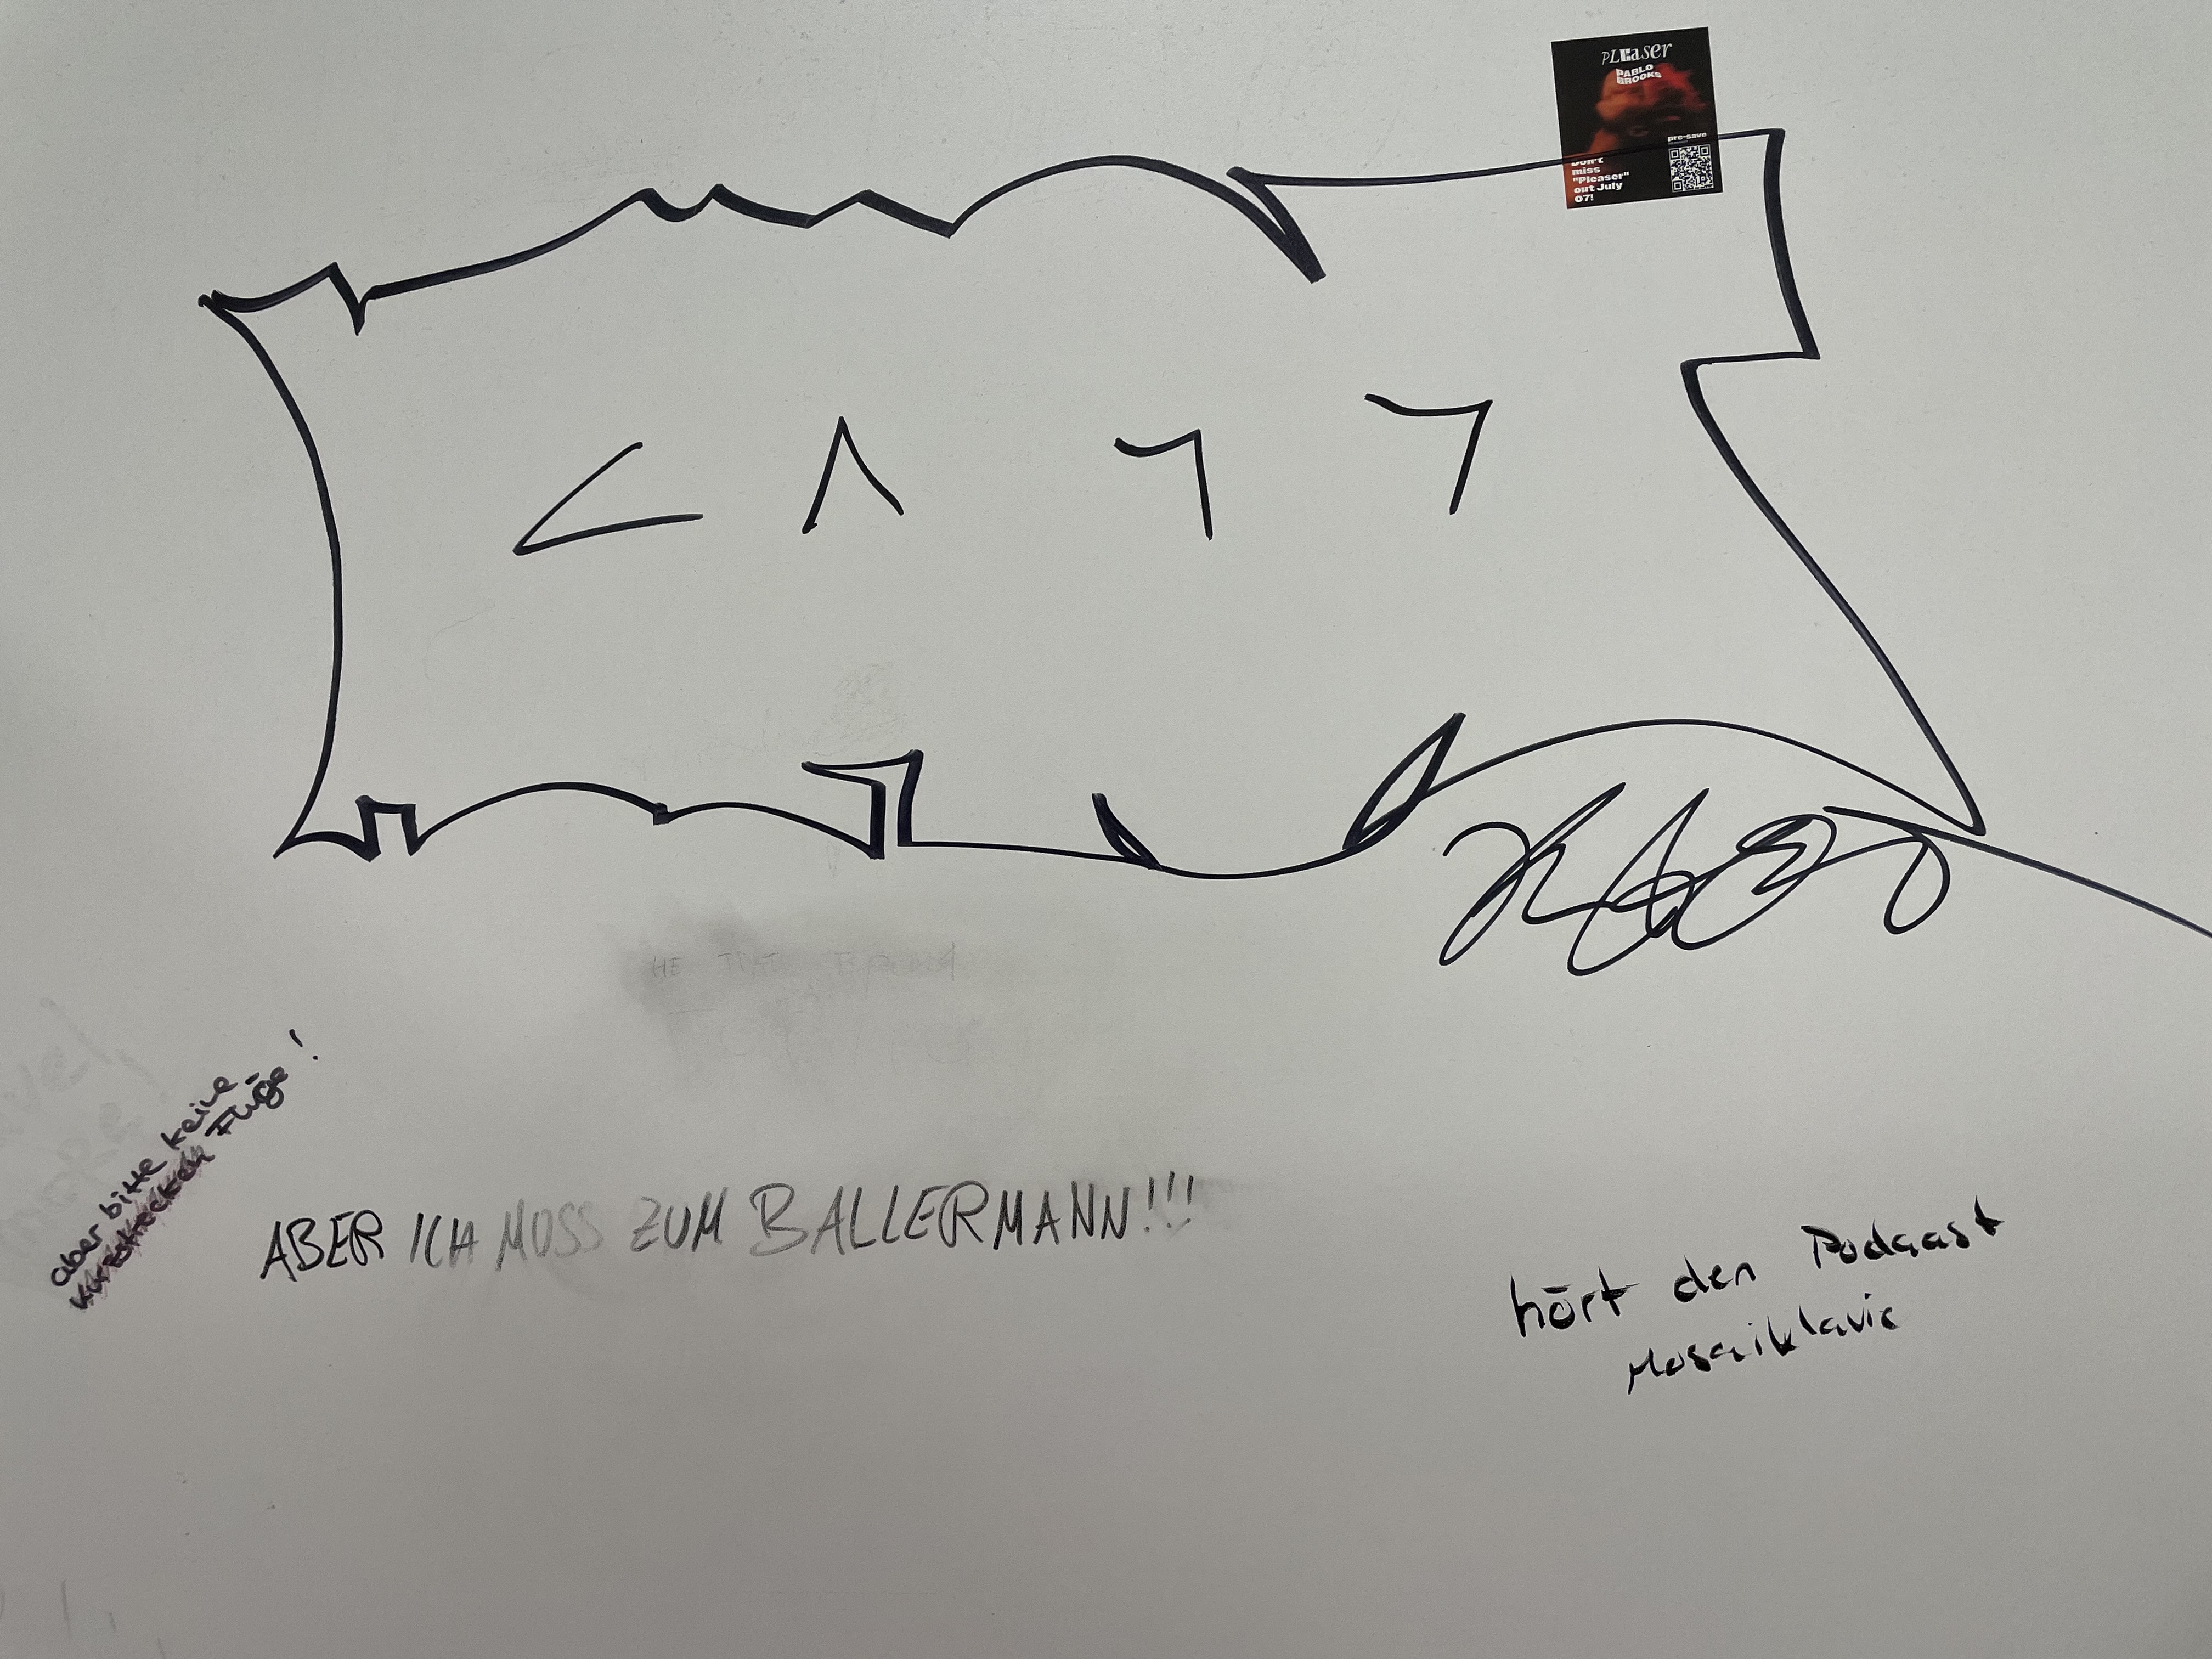 PLEaser
PABLO
BROOKS
pre-save
Don't
miss
"Pleaser"
out July
07!
aber bitte keine
Kurzstrecken Flüge!
ABER ICH MUSS ZUM BALLERMANN!!!
hört den Podcast
Mosaiklavie